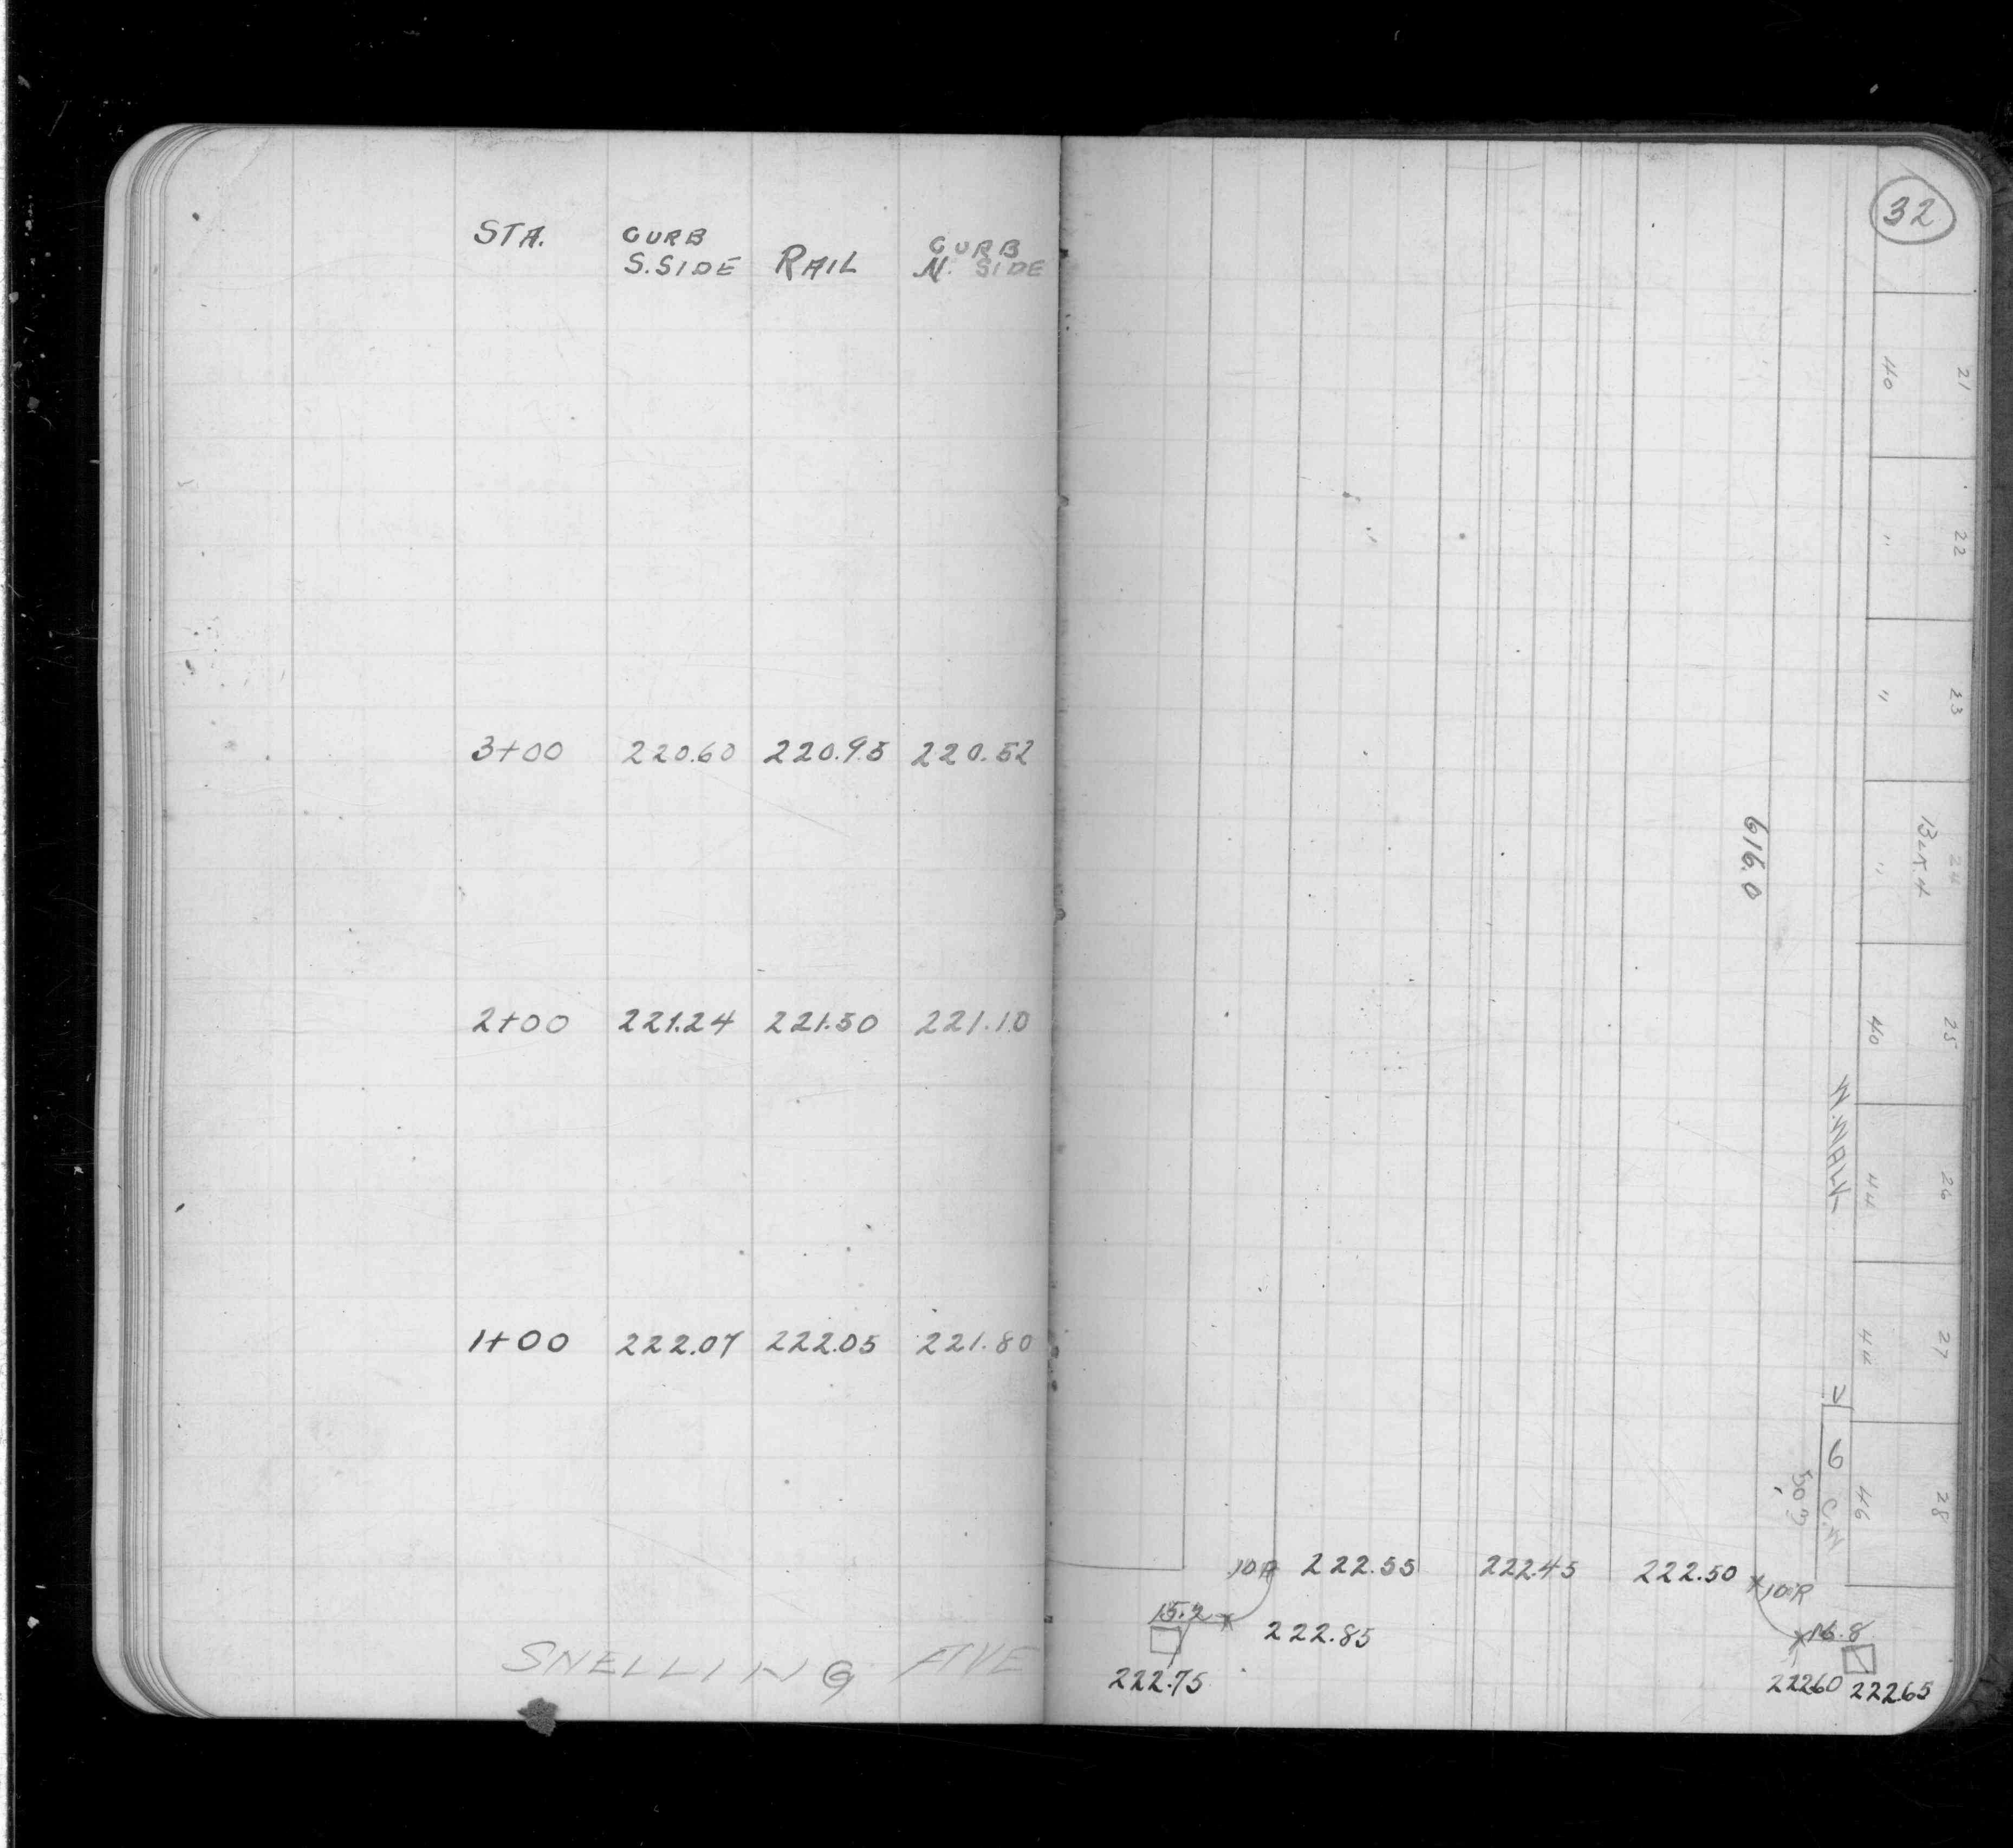 32
STA. CURB S.SIDE RAIL CURB N. SIDE
3+00 220.60 220.95 220.52
2+00 221.24 221.50 221.10
1+00 222.07 222.05 221.80
SNELLING AVE
21
40
22
"
23
"
24
"
616.0
25
40
N. WALK
26
44
27
44
28
46
6 C.W
10R 222.55 222.45 222.50 10R
15.2 222.85 16.8
222.75 222.60 222.65